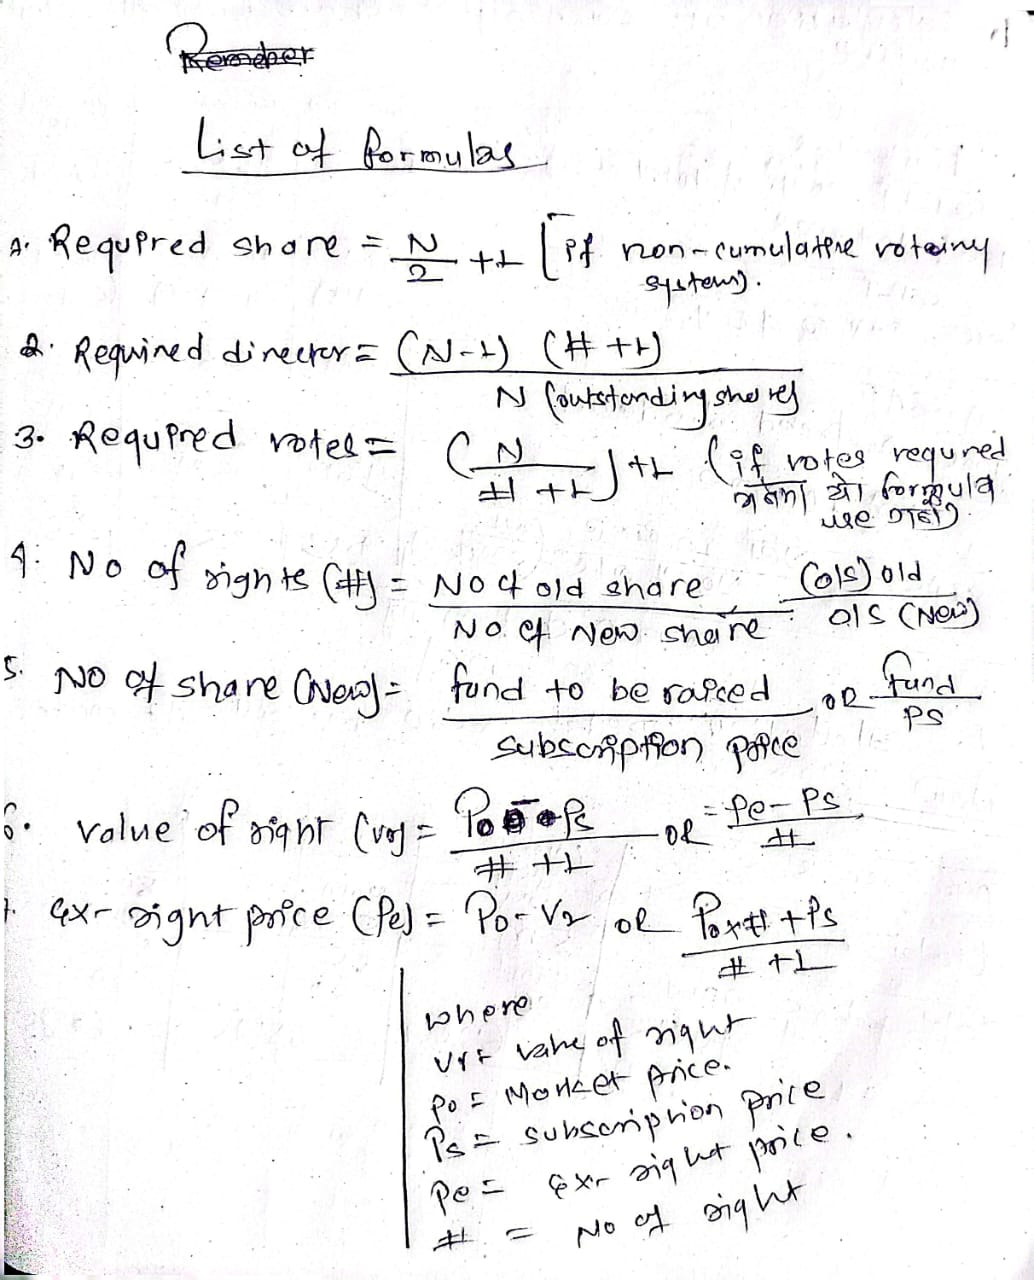 List of formulas
1. Required share = N/2 +1 [if non-cumulative voteiny
system).
2. Required director = (N-1) (# +1)
N (outstanding shares
3. Required votes = (N/# +1) +1 (if votes requred
भनेमा यो formula
use गर्ने)
4. No of rights (#) = No of old share (o/s) old
No. of New share o/s (New)
5. No of share (New) = fund to be raised OR fund
subscription price Ps
6. value of right (vr) = Po - Ps OR = Pe - Ps
# +1 #
7. Ex-right price (Pe) = Po - Vr OR Po x # + Ps
# +1
where
Vr = value of right
Po = Market price.
Ps = subscription price
Pe = Ex-right price.
# = No of right